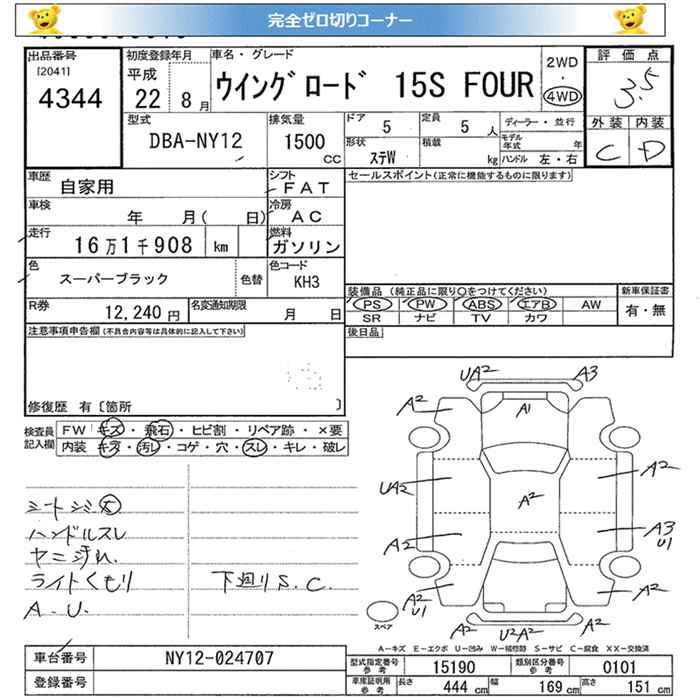 完全ゼロ切りコーナー
出品番号 初度登録年月 車名・グレード 2WD 評価点
[2041]
4344 平成 22年 8月 ウイングロード 15S FOUR ・ 4WD 3.5
型式 排気量 ドア 定員 ディーラー・並行 外装 内装
DBA-NY12 1500 cc 5 5 人 モデル年式 年 C D
形状 積載
ステW kg ハンドル 左・右
車歴 自家用 シフト FAT セールスポイント(正常に機能するものに限ります)
車検 年 月( 日) 冷房 AC
走行 16万1千908 km 燃料 ガソリン
色 スーパーブラック 色替 色コード KH3
装備品 (純正品に限り○をつけてください) 新車保証書
PS PW ABS エアB AW 有・無
SR ナビ TV カワ
R券 12,240円 名変通知期限 月 日
注意事項申告欄(不具合内容等は具体的に記入して下さい) 後日品
修復歴 有〔箇所 〕
検査員 FW キズ・飛石・ヒビ割・リペア跡・×要
記入欄 内装 キズ・汚レ・コゲ・穴・スレ・キレ・破レ
シートシミ大
ハンドルスレ
ヤニ汚れ.
ライトくもり 下廻りS.C.
A.U.
UA2 A3
A2 A1 A2
UA2 A2 A2
A2 A3 U1
A2 U1 A2
A2 U2 A2 A2
スペア
A-キズ E-エクボ U-凹み W-補修跡 S-サビ C-腐食 XX-交換済
車台番号 NY12-024707 型式指定番号 参考 15190 類別区分番号 参考 0101
登録番号 車庫証明用 参考 長さ 444 cm 幅 169 cm 高さ 151 cm